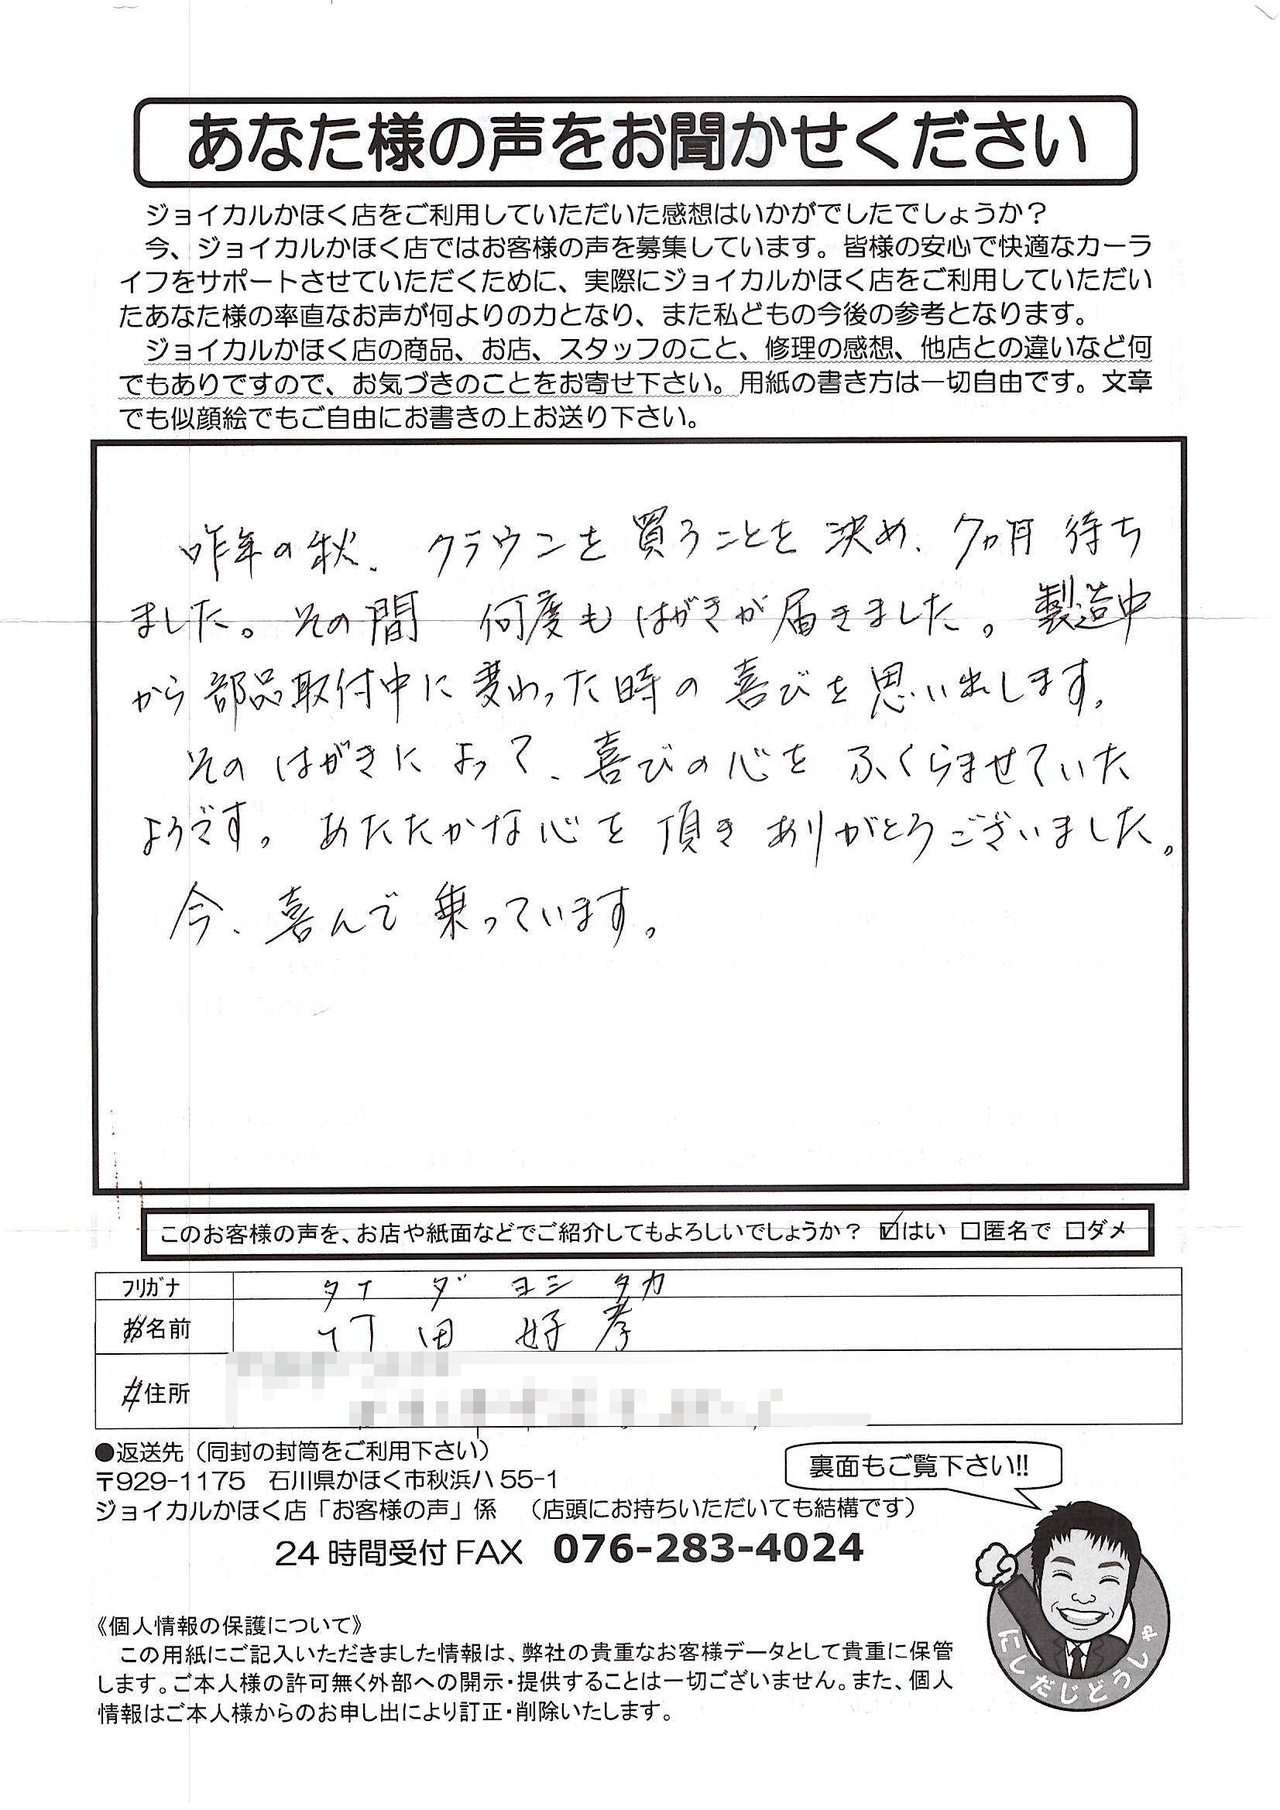 あなた様の声をお聞かせください
ジョイカルかほく店をご利用していただいた感想はいかがでしたでしょうか？
今、ジョイカルかほく店ではお客様の声を募集しています。皆様の安心で快適なカーラ
イフをサポートさせていただくために、実際にジョイカルかほく店をご利用していただい
たあなた様の率直なお声が何よりの力となり、また私どもの今後の参考となります。
ジョイカルかほく店の商品、お店、スタッフのこと、修理の感想、他店との違いなど何
でもありですので、お気づきのことをお寄せ下さい。用紙の書き方は一切自由です。文章
でも似顔絵でもご自由にお書きの上お送り下さい。
昨年の秋、クラウンを買うことを決め、7ヵ月待ち
ました。その間 何度もはがきが届きました。製造中
から部品取付中に変わった時の喜びを思い出します。
そのはがきによって、喜びの心をふくらませていた
ようです。あたたかな心を頂きありがとうございました。
今、喜んで乗っています。
このお客様の声を、お店や紙面などでご紹介してもよろしいでしょうか？ ☑はい □匿名で □ダメ
フリガナ タイダ ヨシタカ
お名前 田 好孝
住所
●返送先（同封の封筒をご利用下さい）
〒929-1175 石川県かほく市秋浜ハ55-1
ジョイカルかほく店「お客様の声」係 （店頭にお持ちいただいても結構です）
24時間受付FAX 076-283-4024
裏面もご覧下さい!!
にしだじどうしゃ
《個人情報の保護について》
この用紙にご記入いただきました情報は、弊社の貴重なお客様データとして貴重に保管
します。ご本人様の許可無く外部への開示・提供することは一切ございません。また、個人
情報はご本人様からのお申し出により訂正・削除いたします。